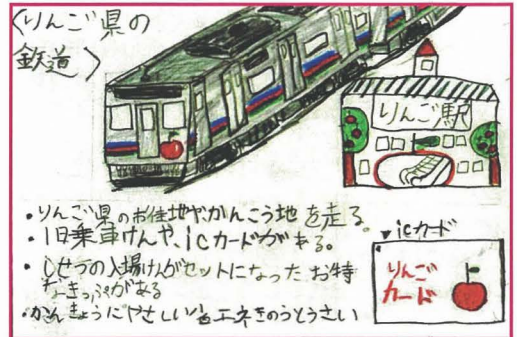 〈りんご県の
鉄道〉
りんご駅
・りんご県のお住地や、かんこう地を走る。
・1日乗車けんや、icカードがある。
・しせつの入場けんがセットになったお特
なきっぷがある
・かんきょうにやさしい省エネきのうとうさい
▾icカード
りんご
カード